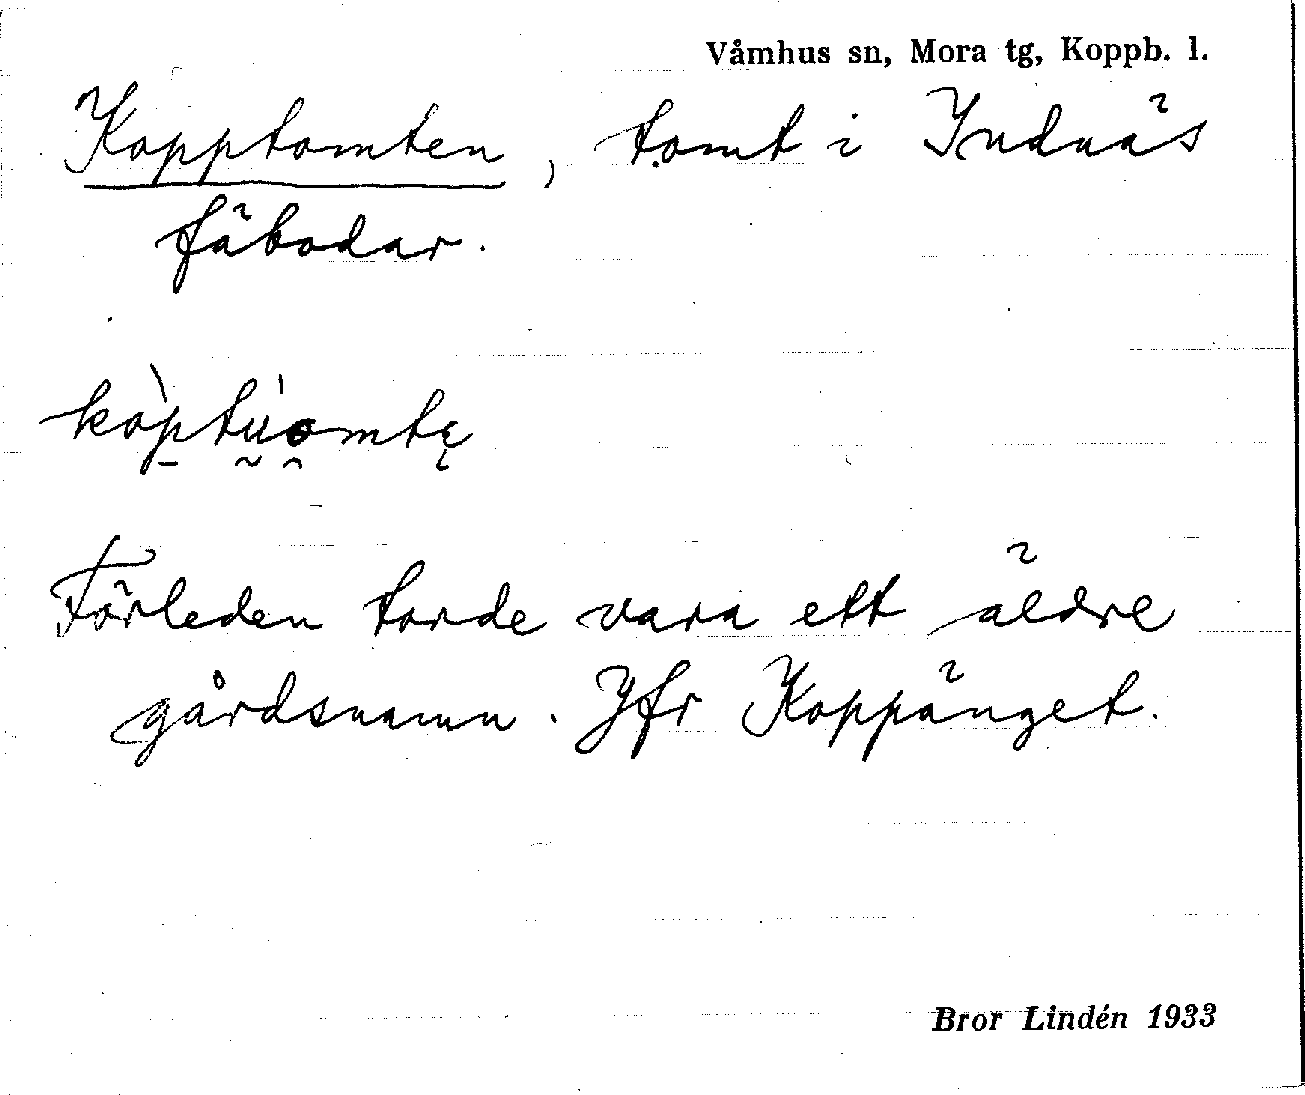 Våmhus sn, Mora tg, Koppb. l.
Kopptomten, tomt i Indnäs
fäbodar.
Förleden torde vara ett äldre
gårdsnamn. Jfr Koppänget.
Bror Lindén 1933